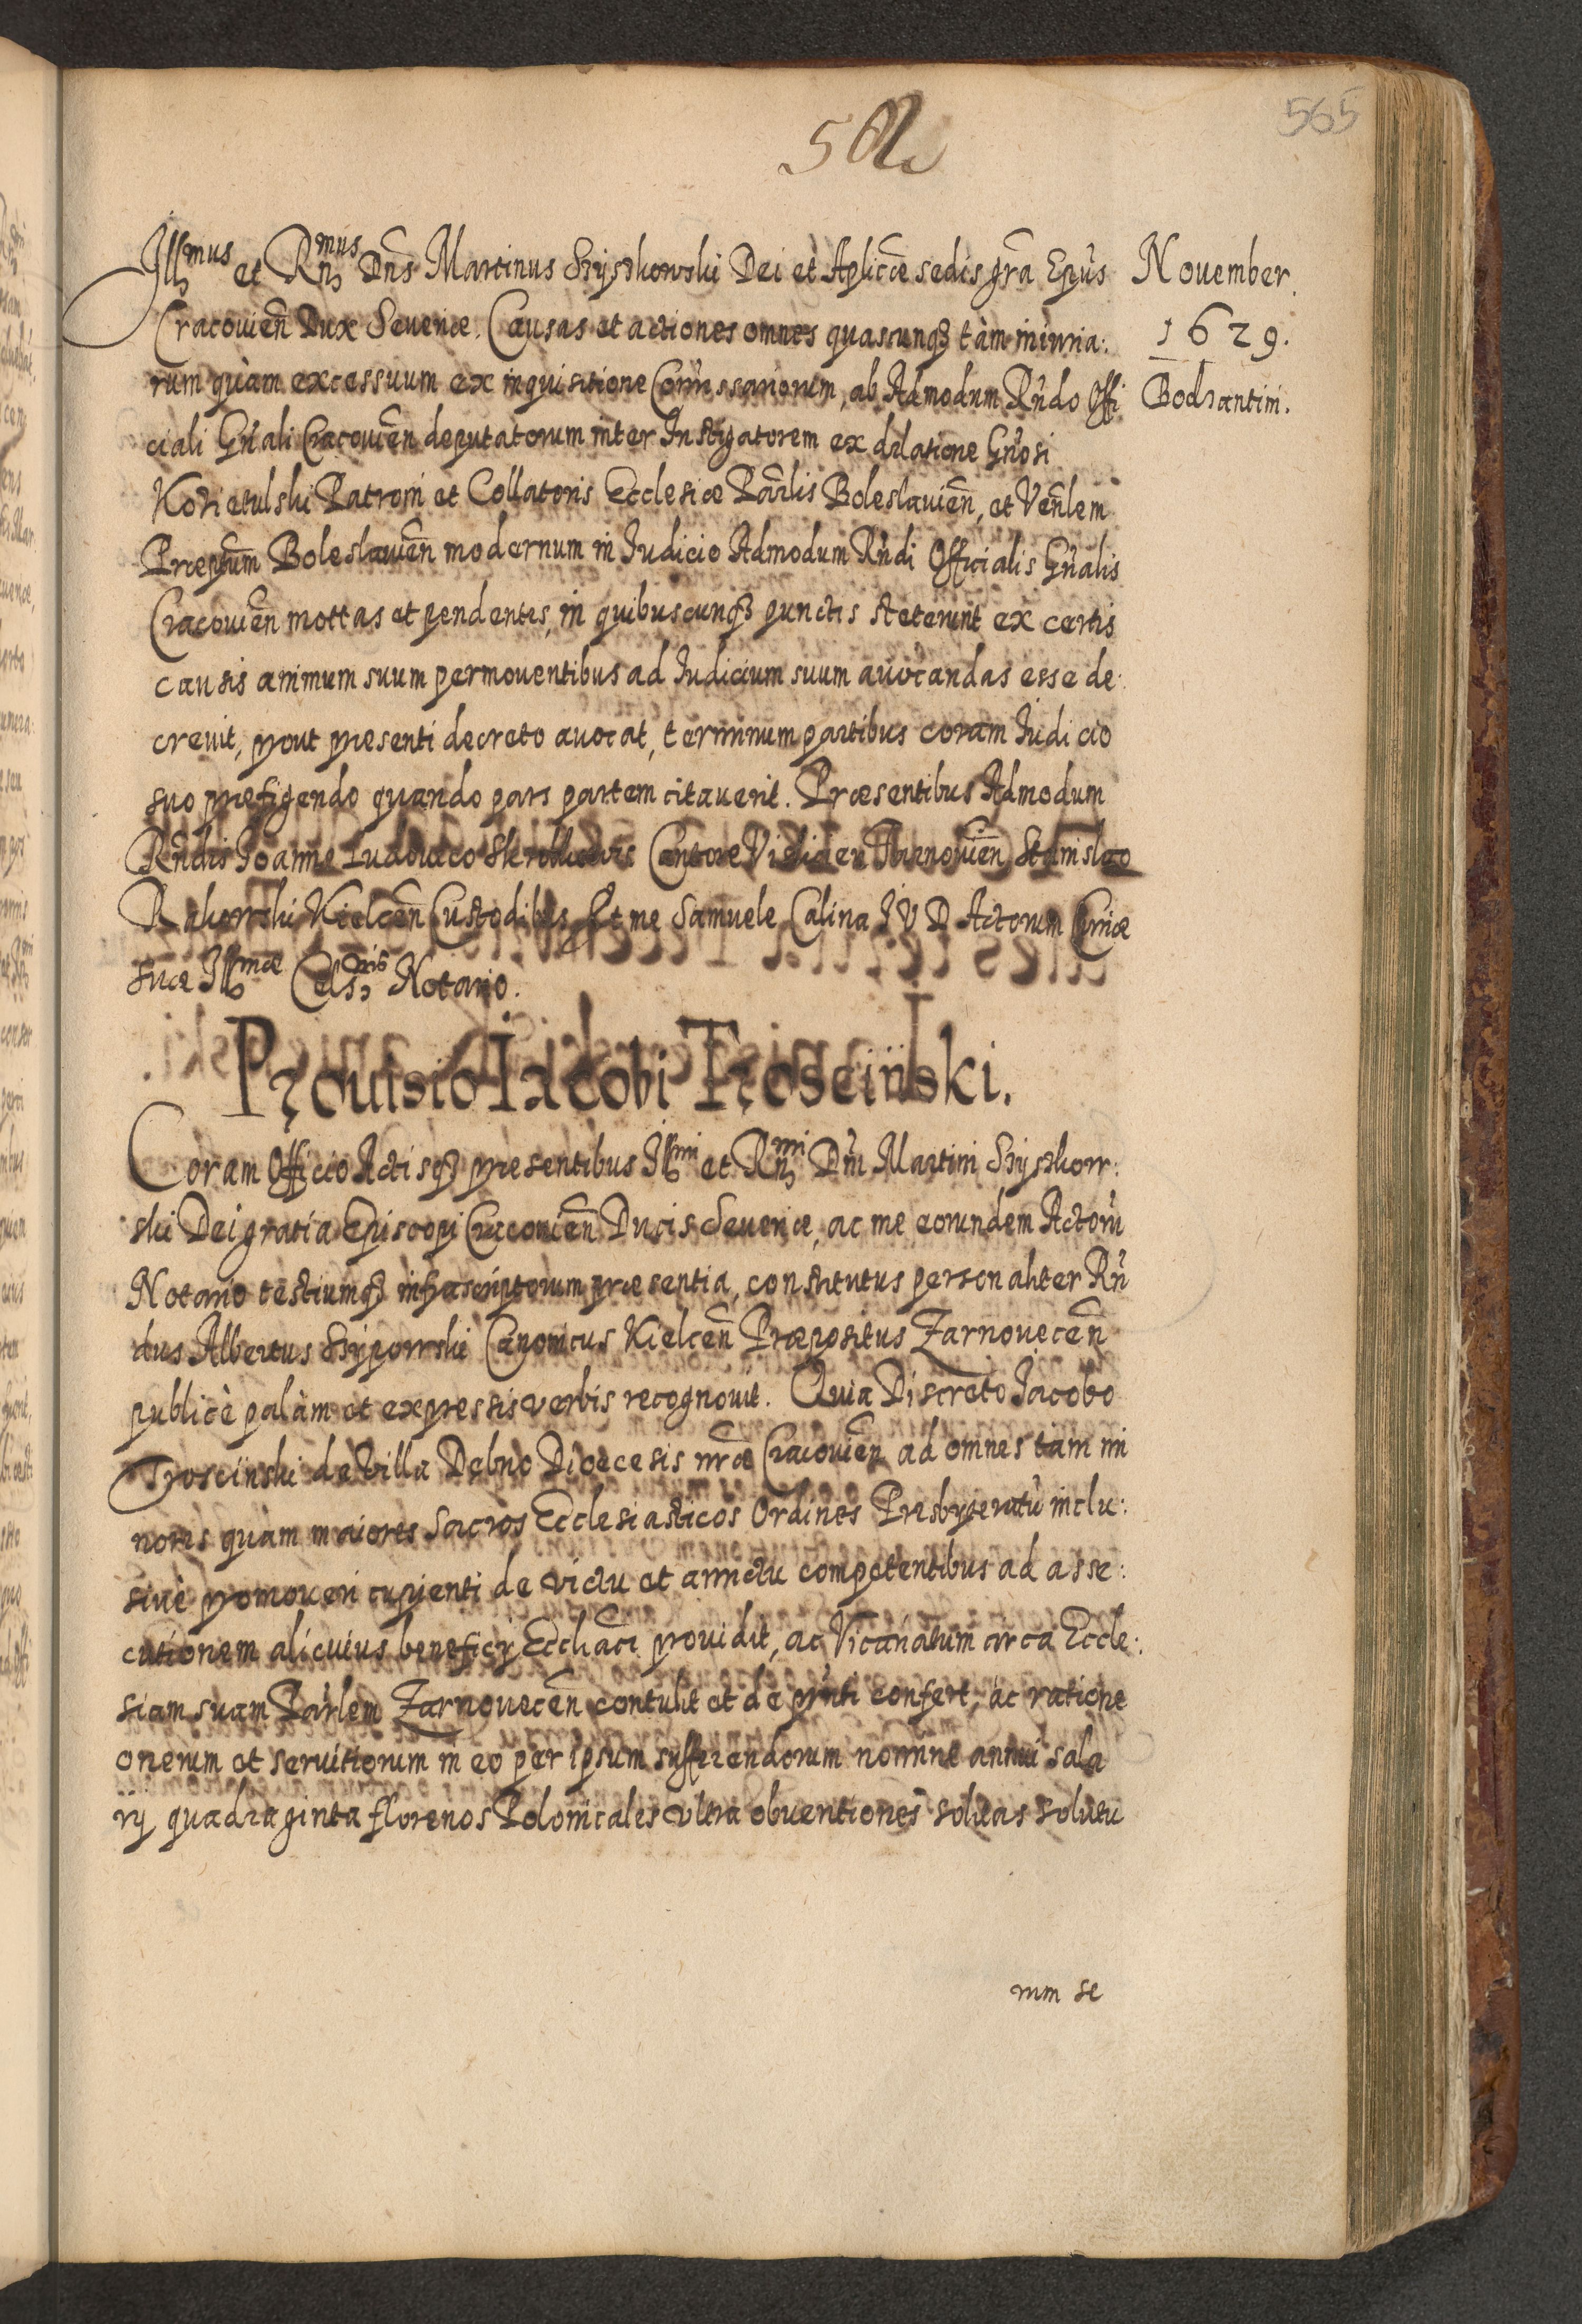 565
Illmus et Rnmus Dns Martinus Szyszkowski Dei et Aplicæ sedis gra Epus
Cracovien Dux Severiæ. Causas et actiones omnes quascunq tàm iniuria:
rum quàm excessuum ex inquisitione Comissariorum, ab Admodum Rndo Offi
ciali Gnali Cracovien deputatorum inter Instigatorem ex delatione Gnosi
Kozietulski Patroni et Collatoris Ecclesiæ Parlis Boleslavien, et Venlem
Præptum Boleslavien modernum in Iudicio Admodum Rndi Officialis Gnalis
Cracovien mottas et pendentes, in quibuscunq punctis steterint ex certis
causis animum suum permoventibus ad Iudicium suum avocandas esse de:
crevit, prout præsenti decreto avocat, terminum partibus coram Iudicio
suo præfigendo quando pars partem citaverit. Præsentibus Admodum
Rndis Ioanne Ludovico Cantore Vislicien Tarnovien Stanislao
Rakowski Kielcen Custodibus Et me Samuele Calina I V D Actorum Curiæ
suæ Illmæ Celsnis Notario.
Provisio Iacobi Trosciński.
Coram Officio Actisq præsentibus Illmi et Rnmi Dni Martini Szyszkow:
ski Dei gratia Episcopi Cracovien Ducis Severiæ, ac me eorundem Actoru
Notario testiumq infrascriptorum præsentia, constitutus personaliter Rn
dus Albertus Szypowski Canonicus Kielcen Præpositus Zarnovecen
publicè palàm et expressis verbis recognovit. Quia Discreto Iacobo
Trosciński de Villa Debno Dioecesis nræ Cracovien ad omnes tam mi
nores quàm maiores Sacros Ecclesiasticos Ordines Presbyteratu inclu:
sivè promoveri cupienti de victu et amictu competentibus ad asse:
cutionem alicuius beneficij Eccliaci providit, ac Vicariatum circa Eccle:
siam suam Parlem Zarnovecen contulit et de pnti confert, ac ratione
onerum et servitiorum in eo per ipsum sufferendorum nomine annui sala
rij quadraginta florenos Polonicales ultra obventiones solitas solutu
rum se
November.
1629.
Bodzantin.